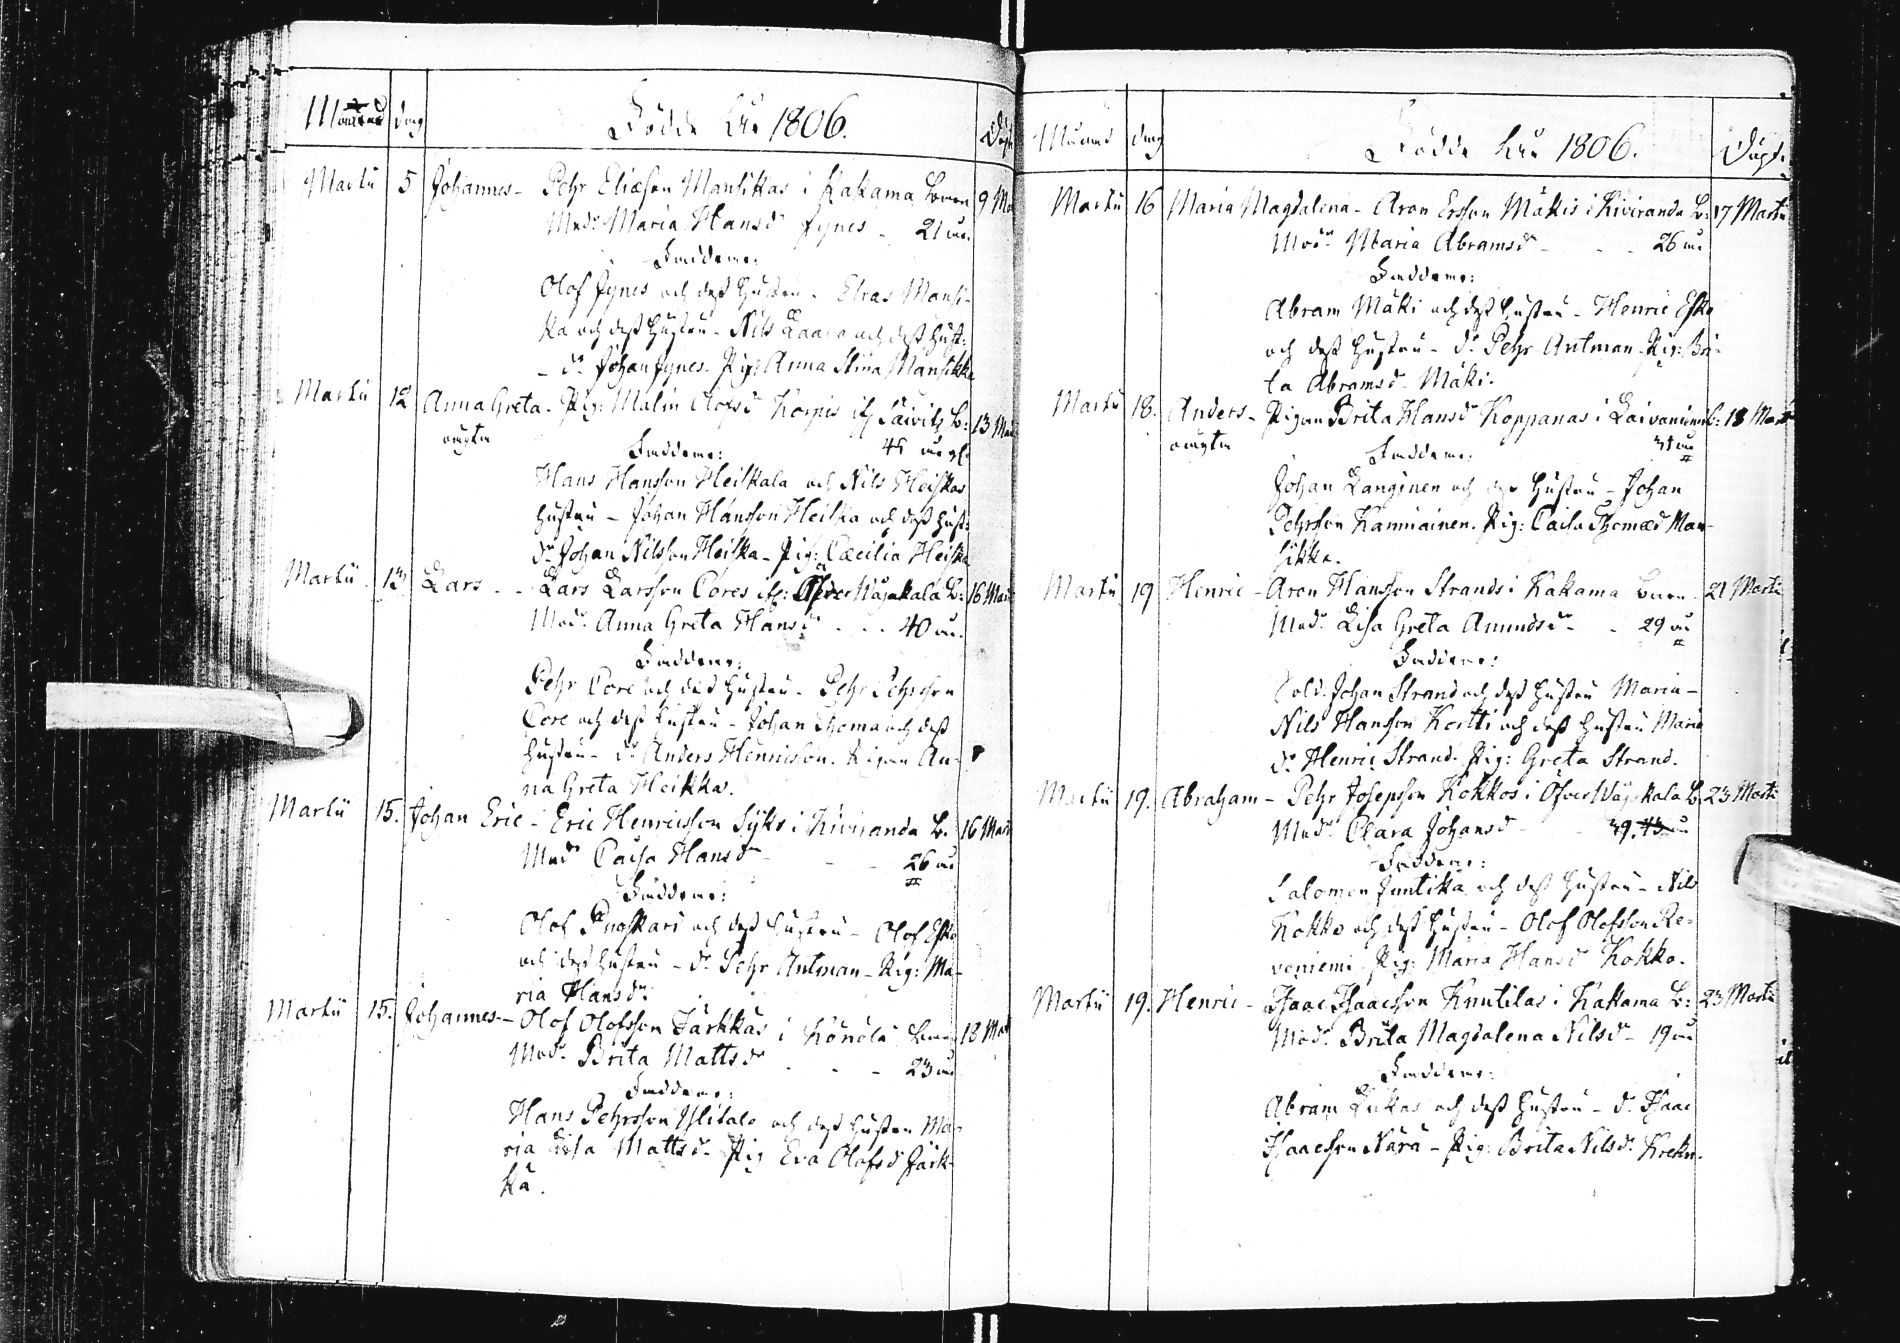 Månad dag Födde År 1806. Döpt
Martii 5 Johannes - Pehr Eliæson Mansikkas i Kakama Barn 9 Ma
Modr Maria Hansdr Jynes - 21 år.
Faddrar:
Olof Jynes och dess hustru - Elias Mansi-
ka och dess hustru - Nils Laara och dess hust:
- dr Johan Jynes - Pig: Anna Stina Mansikka
Martii 12 Anna Greta - Pig: Malin Olofsdr Kornis if: Laivitz B: 13 Mar
oägta 45 år gl.
Faddrar:
Hans Hansson Heiskala och Nils Heiskas
hustru - Johan Hansson Heiska och dess hust:
dr Johan Nilsson Heiska - Pig: Cæcilia Heiska
Martii 13 Lars - Lars Larsson Cores if: Öfver Wojakala B: 16 Mar
Modr Anna Greta Hansdr - - 40 år.
Faddrar:
Pehr Core och dess hustru - Pehr Pehrsson
Core och dess hustru - Johan Thoma och dess
hustru - dr Anders Henricsson. Pigan An-
na Greta Heikka.
Martii 15. Johan Eric - Eric Henricsson Sÿks i Kiviranda B: 16 Mar
Modr Caisa Hansdr - - 26 år
Faddrar:
Olof Puoskari och dess hustru - Olof Esko
och dess hustru - dr Pehr Antman - Pig: Ma-
ria Hansdr
Martii 15. Johannes - Olof Olofsson Järkkäs i Könölä Barn 18 Mar
Modr Brita Mattsdr - - 23 år
Faddrar:
Hans Pehrsson Ylitalo och dess hustru Ma-
ria Lisa Mattsdr - Pig Eva Olofsdr Järk-
kä.
Månad dag Födde År 1806. Döpt.
Martii 16 Maria Magdalena - Aron Ersson Mäkis i Kiviranda B: 17 Martii
Modr Maria Abramsdr - - 26 år
Faddrar:
Abram Mäki och dess hustru - Henric Esko
och dess hustru - dr Pehr Antman - Pig: Bri-
ta Abramsdr Mäki.
Martii 18. Anders - Pigan Brita Hansdr Koppanas i Laivaniemi B: 18 Martii
oägta 31 år
Faddrar:
Johan Langinen och dess hustru - Johan
Pehrsson Kamiainen. Pig: Caisa Thomædr Man-
sikka.
Martii 19 Henric - Aron Hansson Strands i Kakama Barn - 21 Martii
Modr Lisa Greta Amundsdr - 29 år
Faddrar:
Sold. Johan Strand och dess hustru Maria -
Nils Hansson Kortti och dess hustru Maria
dr Henric Strand. Pig: Greta Strand.
Martii 19. Abraham - Pehr Josepsson Kokkos i Öfver Woyakala B: 23 Martii
Modr Clara Johansdr - 39. 43 år
Faddrar:
Salomon Juntika och dess hustru - Nils
Kokko och dess hustru - Olof Olofsson Re-
voniemi. Pig: Maria Hansdr Kokko.
Martii 19. Henric - Isaac Isaacsson Knutilas i Kakama B: 23 Martii
Modr Brita Magdalena Nilsdr - 19 år
Faddrar:
Abram Lukas och dess hustru - dr Isaac
Isaacsson Nära - Pig: Brita Nilsdr Kreku.